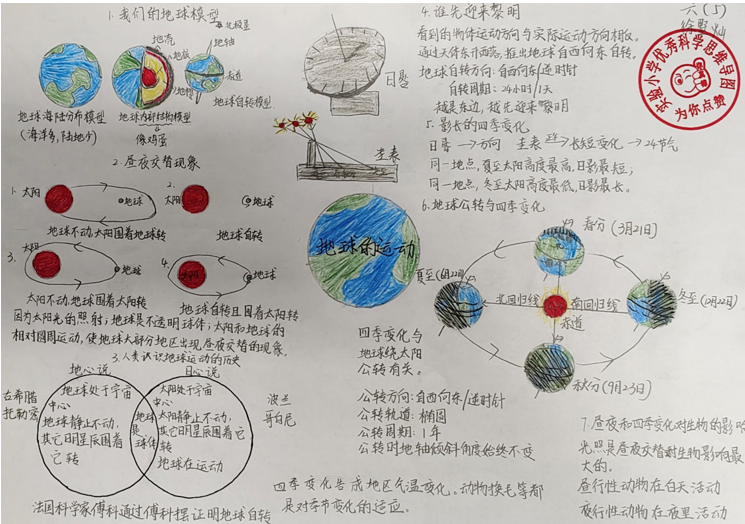 1.我们的地球模型
北极星
地壳
地轴
地幔
赤道
地核
地球自转模型
地球海陆分布模型
(海洋多,陆地少)
地球内部结构模型
像鸡蛋
日晷
圭表
2.昼夜交替现象
1.
太阳
地球
地球不动,太阳围着地球转
2.
太阳
地球
地球自转
3.
太阳
地球
太阳不动,地球围着太阳转
4.
太阳
地球
地球自转且围着太阳转
因为太阳光的照射;地球是不透明球体;太阳和地球的
相对圆周运动,使地球大部分地区出现昼夜交替的现象。
3.人类认识地球运动的历史
地心说
日心说
古希腊
托勒密
地球处于宇宙
中心
地球静止不动,
其它日月星辰围着
它转
地球是球体
太阳处于宇宙
中心
太阳静止不动,
其它日月星辰围着它
转
地球在运动
波兰
哥白尼
法国科学家傅科通过傅科摆证明地球自转
地球的运动
4.谁先迎来黎明
看到的物体运动方向与实际运动方向相反。
通过天体东升西落,推出地球自西向东自转。
地球自转方向:自西向东/逆时针
自转周期:24小时/1天
越是东边,越先迎来黎明
5.影长的四季变化
日晷→方向 圭表→长短变化→24节气
同一地点,夏至太阳高度最高,日影最短;
同一地点,冬至太阳高度最低,日影最长。
6.地球公转与四季变化
春分(3月21日)
夏至(6月22日)
北回归线
南回归线
赤道
冬至(12月22日)
秋分(9月23日)
四季变化与
地球绕太阳
公转有关。
公转方向:自西向东/逆时针
公转轨道:椭圆
公转周期:1年
公转时地轴倾斜角度始终不变
四季变化造成地区气温变化。动物换毛等都
是对季节变化的适应。
六(5)
实验小学优秀科学思维导图
为你点赞
7.昼夜和四季变化对生物的影响
光照是昼夜交替对生物影响最
大的。
昼行性动物在白天活动
夜行性动物在夜里活动